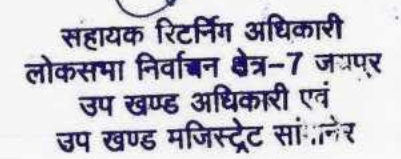 सहायक रिटर्निग अधिकारी
लोकसभा निर्वाचन क्षेत्र-7 जयपुर
उप खण्ड अधिकारी एवं
उप खण्ड मजिस्ट्रेट सांगानेर